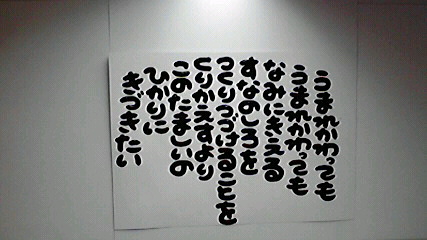 うまれかわっても
うまれかわっても
なみにきえる
すなのしろを
つくりつづけることを
くりかえすより
このたましいの
ひかりに
きづきたい